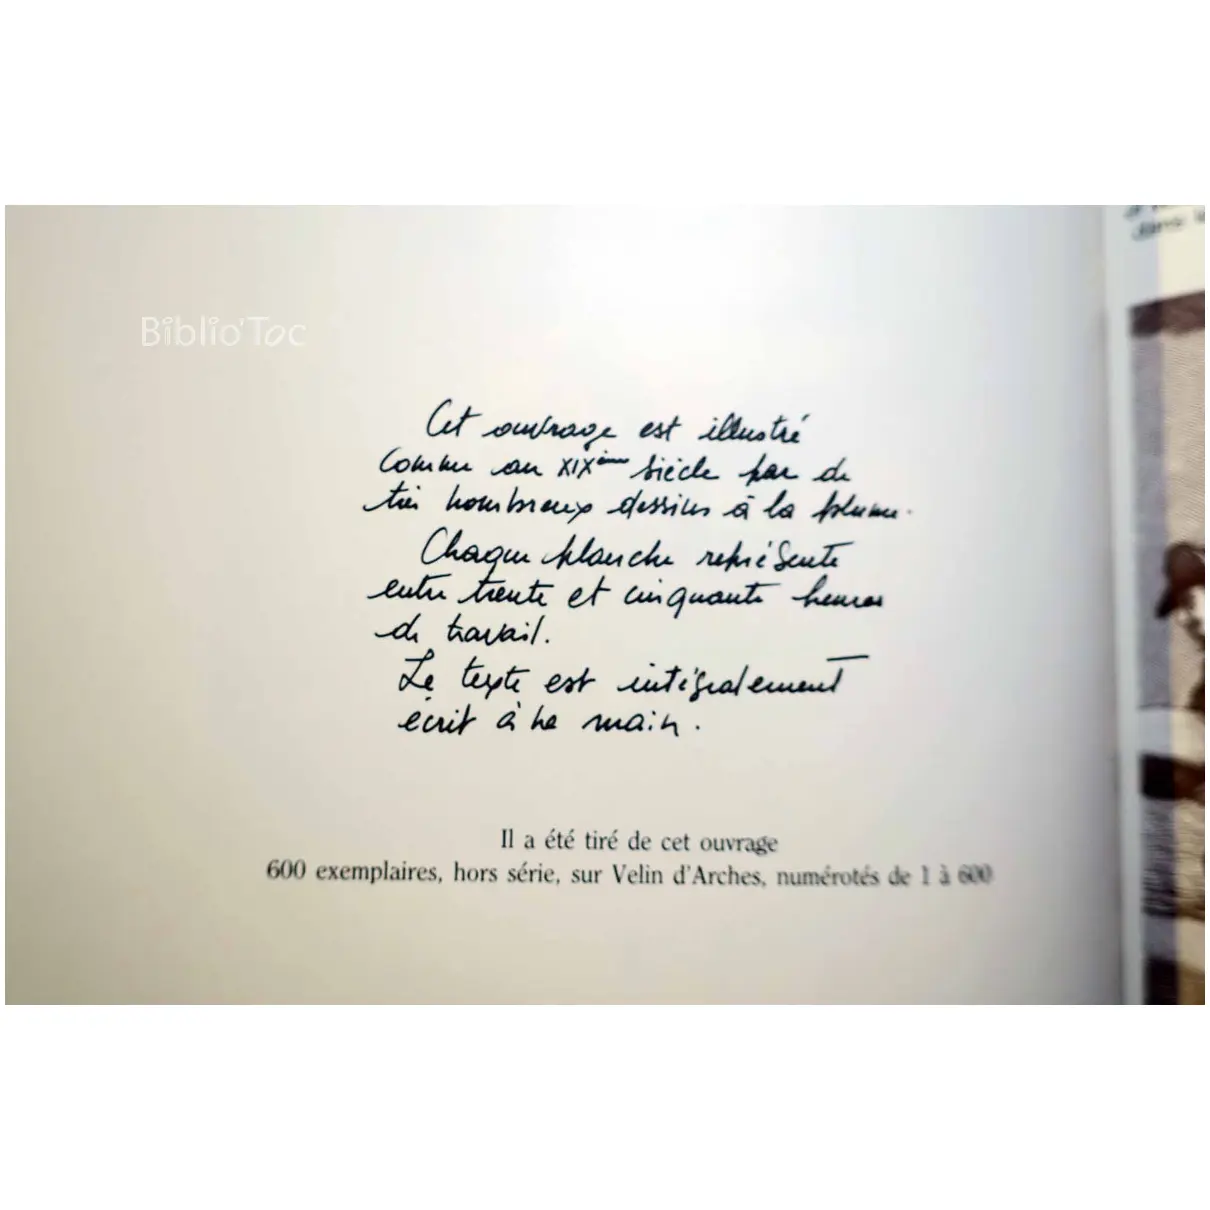 Biblio'Toc
Cet ouvrage est illustré
comme au XIXème siècle par de
très nombreux dessins à la plume.
Chaque planche représente
entre trente et cinquante heures
de travail.
Le texte est intégralement
écrit à la main.
Il a été tiré de cet ouvrage
600 exemplaires, hors série, sur Velin d'Arches, numérotés de 1 à 600